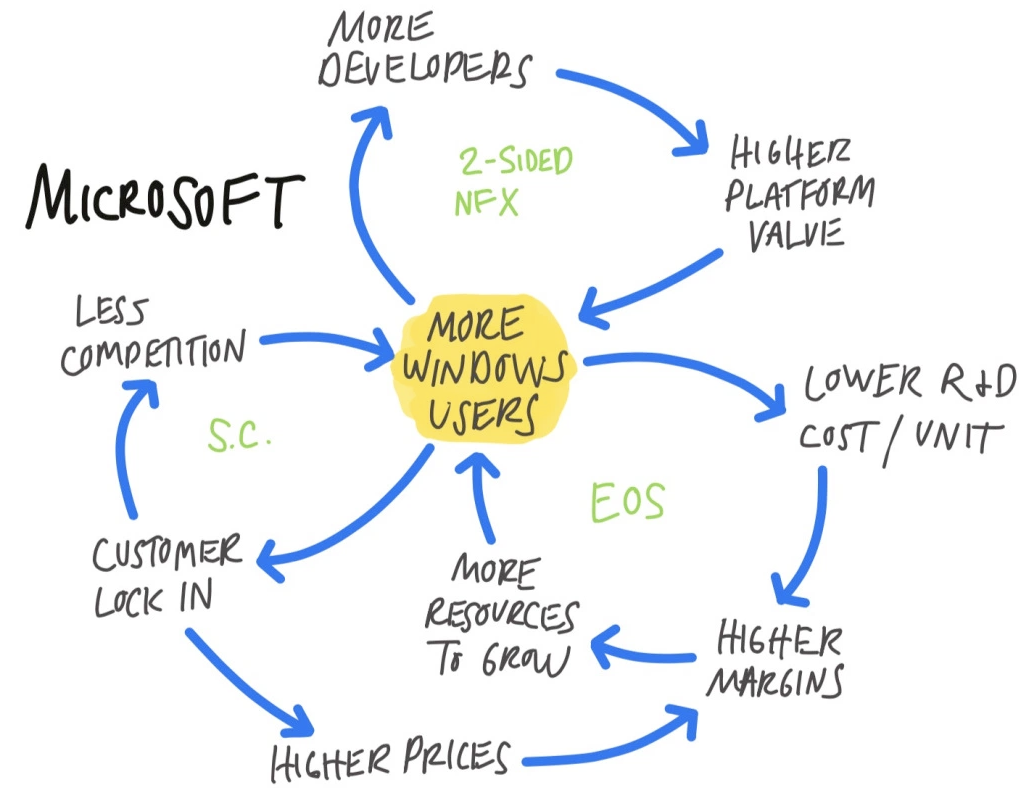 MORE
DEVELOPERS
2-SIDED
NFX
HIGHER
PLATFORM
VALUE
MICROSOFT
LESS
COMPETITION
MORE
WINDOWS
USERS
LOWER R&D
COST/UNIT
S.C.
EOS
CUSTOMER
LOCK IN
MORE
RESOURCES
TO GROW
HIGHER
MARGINS
HIGHER PRICES